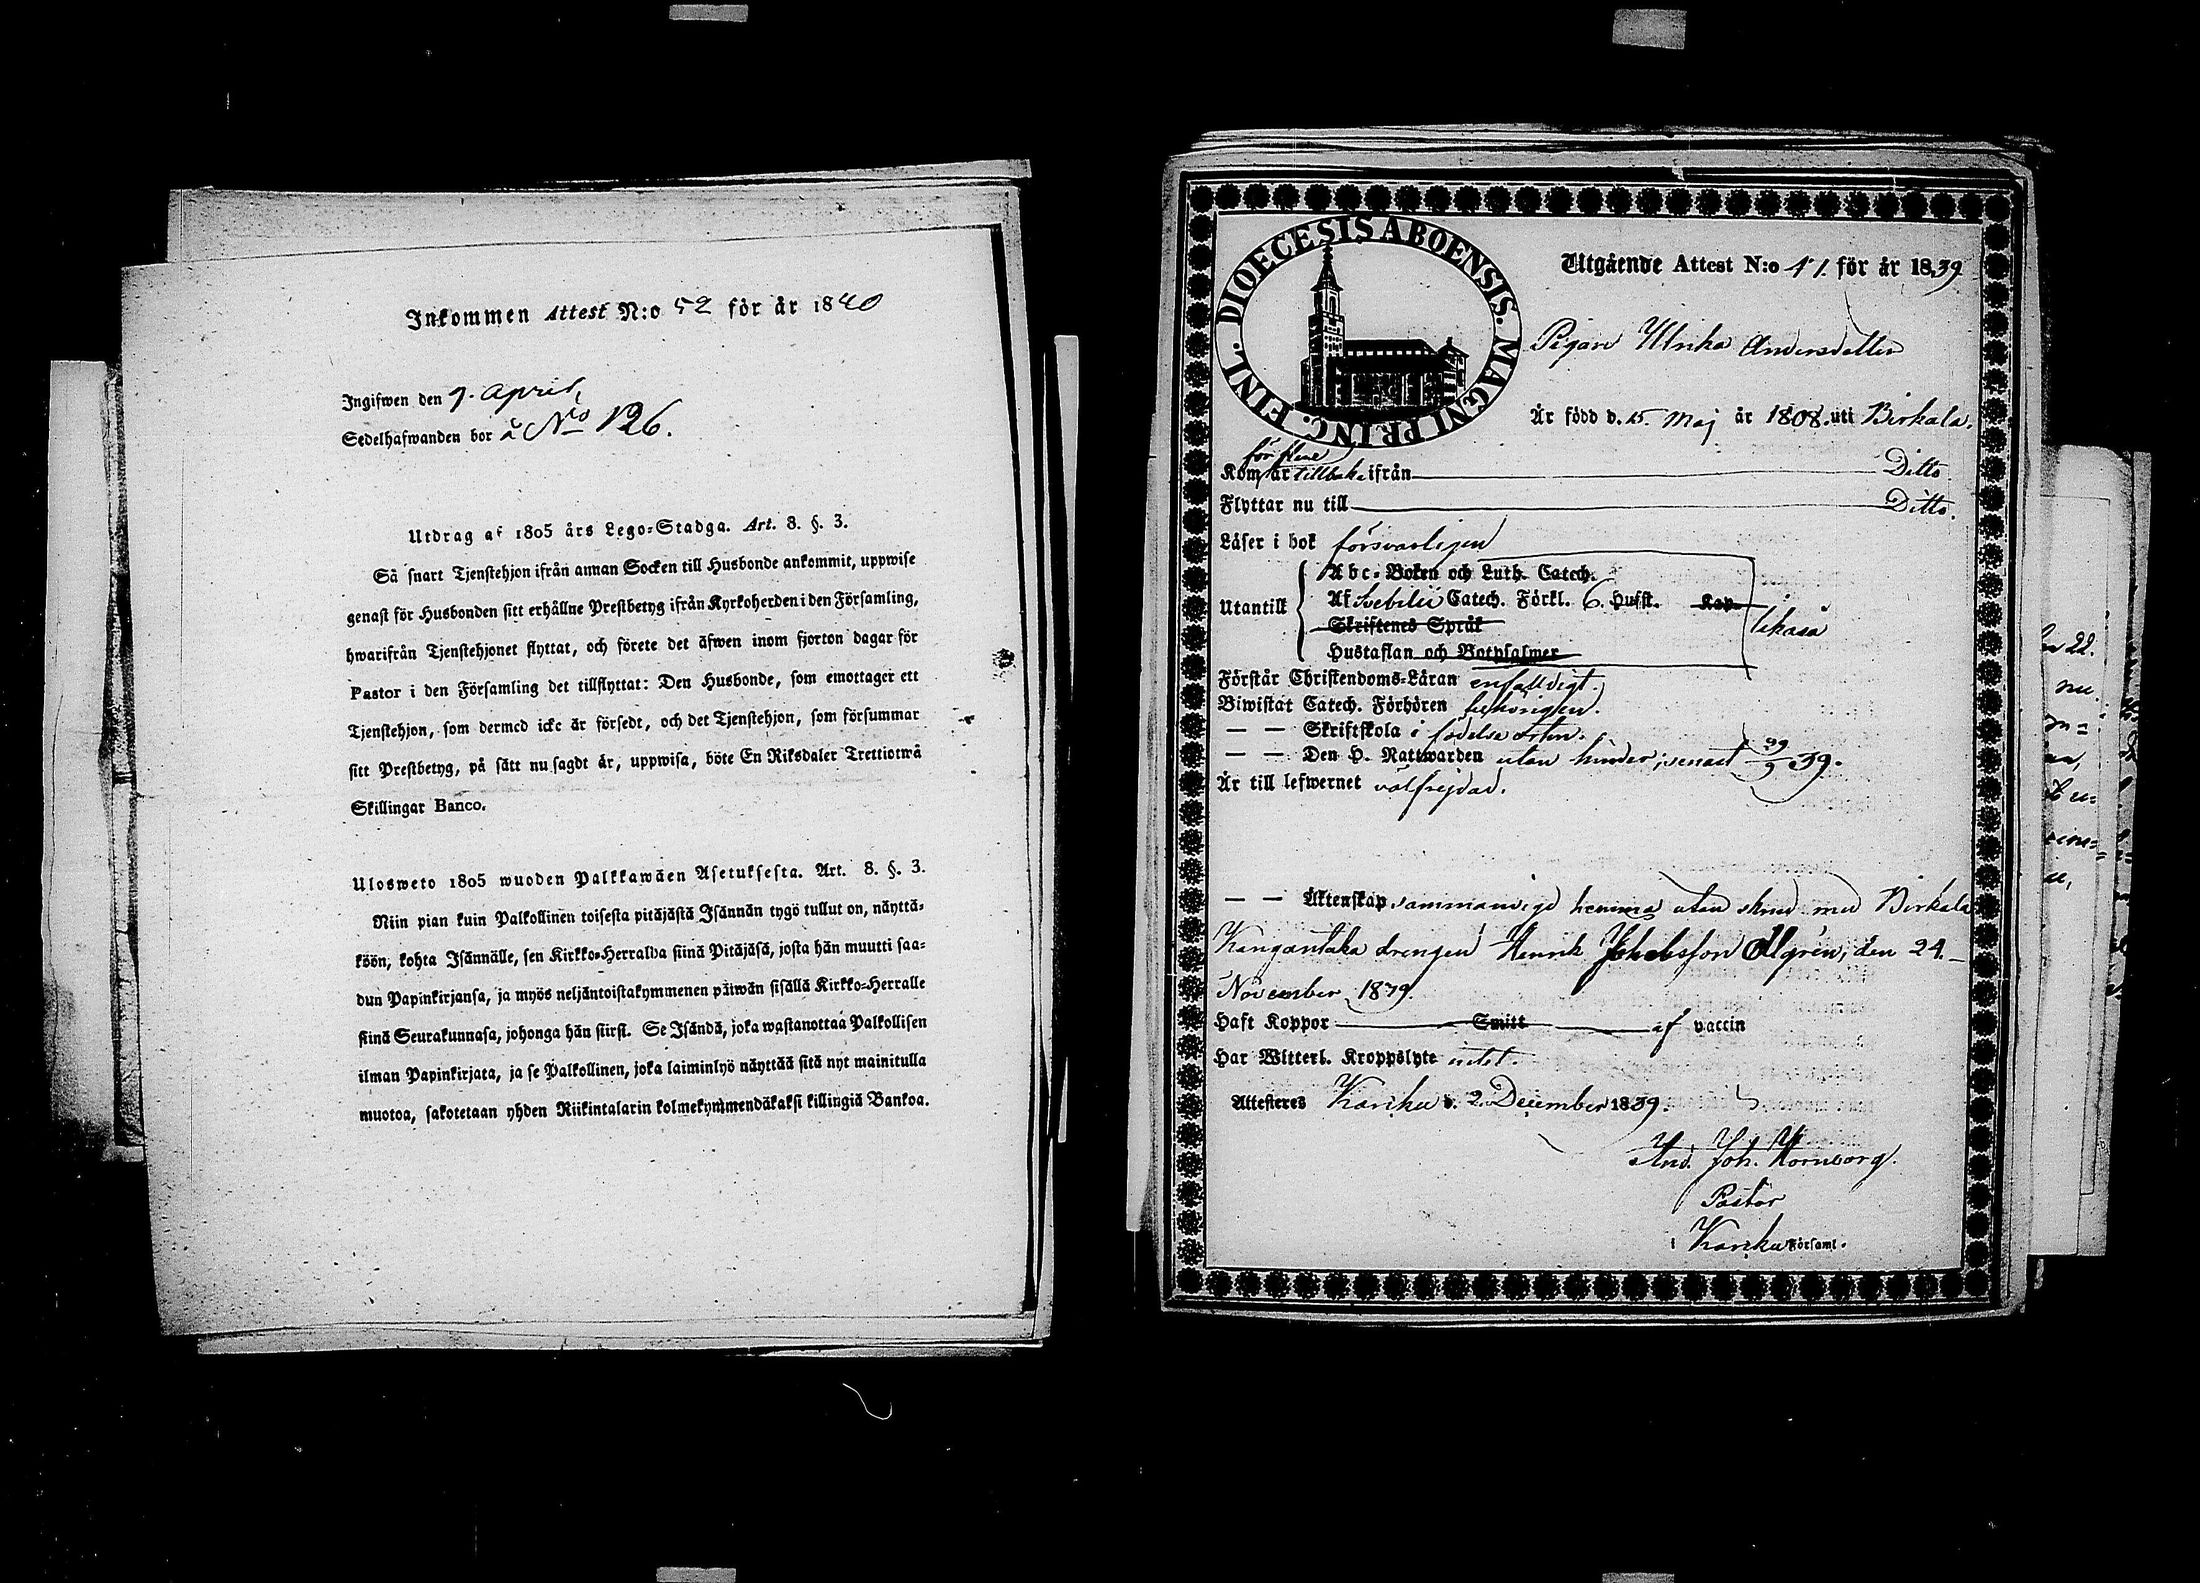 Inkommen Attest N:o 52 för år 1840
Ingifwen den 7. April,
Sedelhafwanden bor å No 126.
Utdrag af 1805 års Lego-Stadga. Art. 8. §. 3.
Så snart Tjenstehjon ifrån annan Socken till Husbonde ankommit, uppwise
genast för Husbonden sitt erhållne Prestbetyg ifrån Kyrkoherden i den Församling,
hwarifrån Tjenstehjonet flyttat, och förete det äfwen inom fjorton dagar för
Pastor i den Församling det tillflyttat: Den Husbonde, som emottager ett
Tjenstehjon, som dermed icke är försedt, och det Tjenstehjon, som försummar
sitt Prestbetyg, på sätt nu sagdt är, uppwisa, böte En Riksdaler Trettiotwå
Skillingar Banco.
Ulosweto 1805 wuoden Palkkawäen Asetuksesta. Art. 8. §. 3.
Niin pian kuin Palkollinen toisesta pitäjästä Isännän tygö tullut on, näyttä-
köön, kohta Isännälle, sen Kirkko-Herralda siinä Pitäjäsä, josta hän muutti saa-
dun Papinkirjansa, ja myös neljäntoistakymmenen päiwän sisällä Kirkko-Herralle
siinä Seurakunnasa, johonga hän siirsi. Se Isändä, joka wastanottaa Palkollisen
ilman Papinkirjata, ja se Palkollinen, joka laiminlyö näyttää sitä nyt mainitulla
muotoa, sakotetaan yhden Riikintalarin kolmekymmendäkaksi killingiä Bankoa.
DIOECESIS ABOENSIS. MAGNI PRINC. FINL.
Utgående Attest N:o 41. för år 1839
Pigan Ulrika Andersdotter
Är född d. 15 Maj år 1808. uti Birkala.
för flere
Kom år tillbaka ifrån Ditto
Flyttar nu till Ditto.
Läser i bok försvarligen
Utantill
Abc-Boken och Luth. Catech.
Af Svebilii Catech. Förkl. 6. Hufst. Kap.
Skriftenes Språk
Hustaflan och Botpsalmer
likaså
Förstår Christendoms-Läran enfaldigt.
Biwistat Catech. Förhören behörigen.
— — Skriftskola i födelse orten.
— — Den H. Nattwarden utan hinder, senast 29/9 39.
Är till lefwernet välfrejdad.
— — Äktenskap sammanvigd hemma utan skrud med Birkala
Kangantaka drengen Henrik Johansson Ahlgrén, den 24.
November 1839.
Haft Koppor — Smitt — af vaccin
Har Witterl. Kroppslyte intet.
Attesteres Karku d. 2 December 1839.
And. Joh. Hornborg.
Pastor
i Karku Församl.